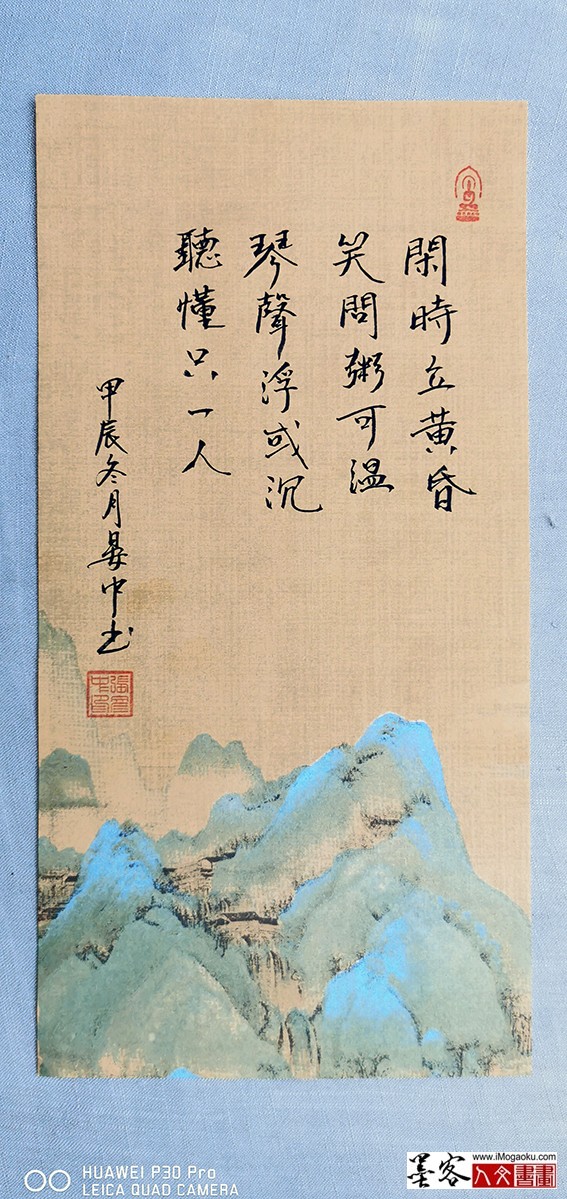 閑時立黄昏
笑問粥可温
琴聲浮或沉
聽懂只一人
甲辰冬月晏中书
HUAWEI P30 Pro
LEICA QUAD CAMERA
www.iMogaoku.com
墨客人文書畫